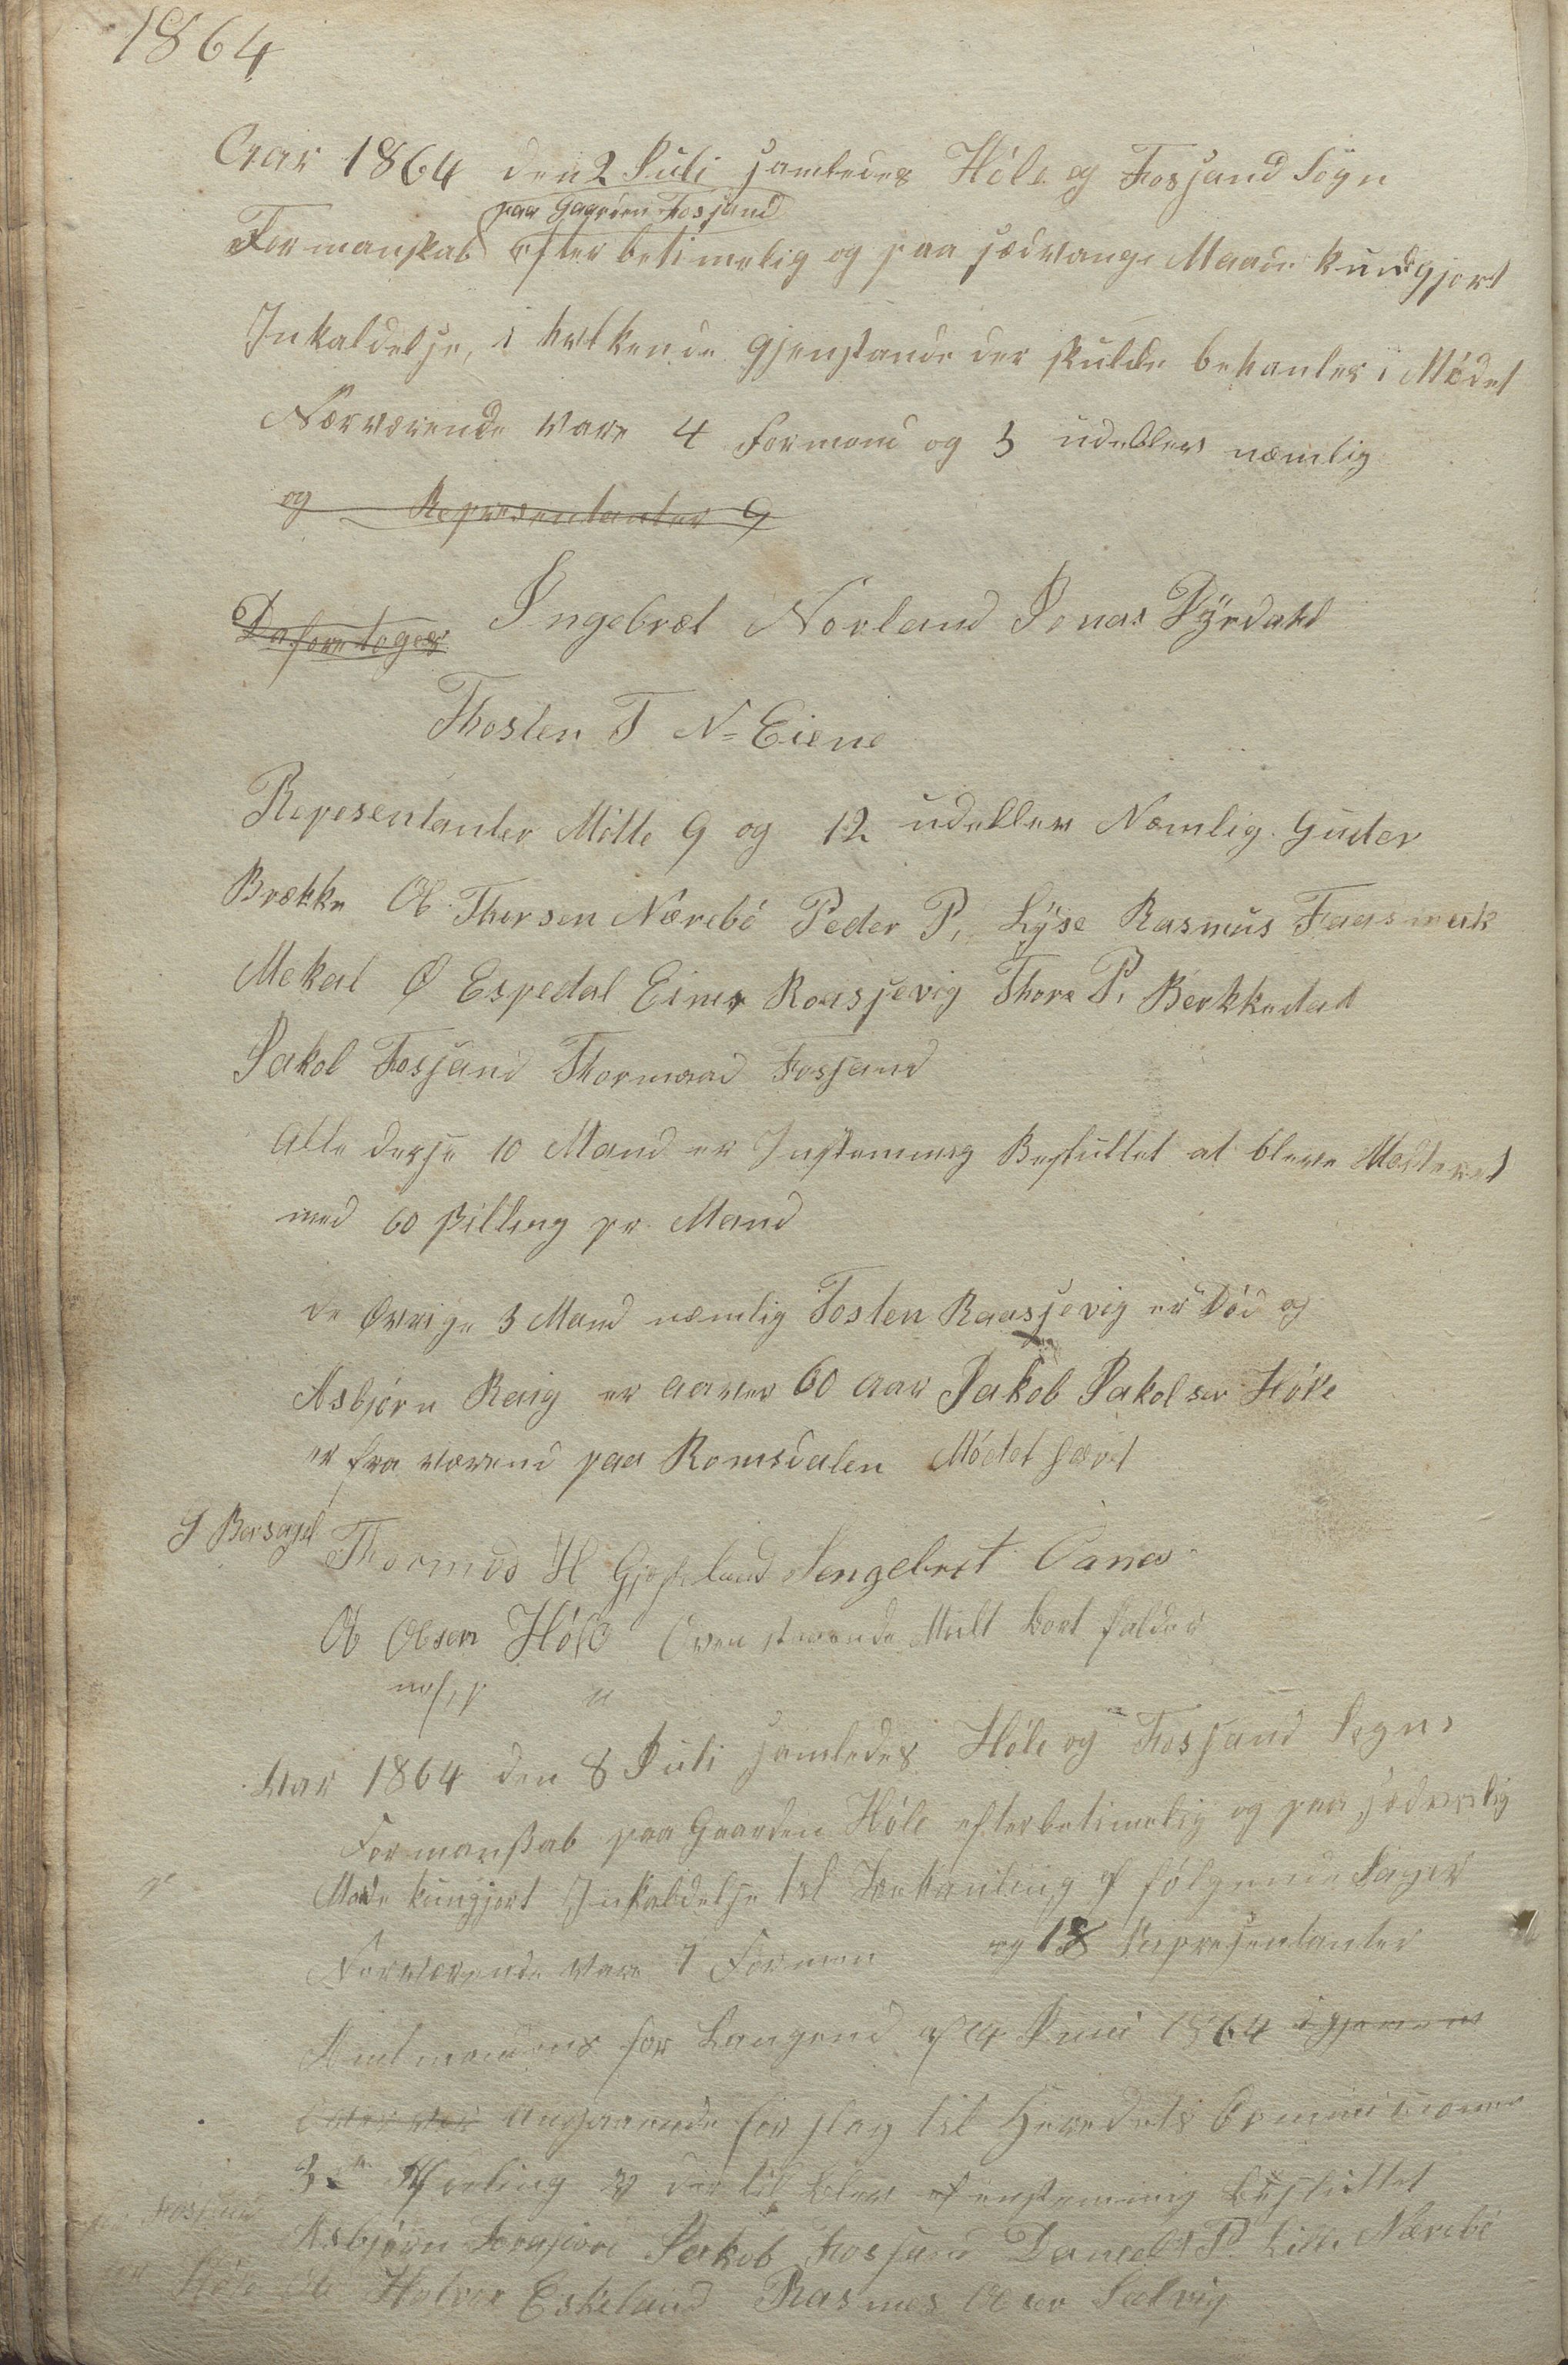 1864
Aar 1864 den 2 Juli samledes Höle og Fossand Sogn
paa Gaarden Fossand
Formanskab efter betimelig og paa sædvange Maade kundgjort
Inkaldelse, i hvilkende gjenstande der skulde behanles i Mödet
Nærværende vare 4 Formænd og 3 udeblev næmlig
og Representanter 9
Da foretoges Ingebret Norland Jonas Dyrdahl
Thosten T N= Eiene
Repesentanter Mötte 9 og 12 udeblev Næmlig Guder
Brække Ol Thorsen Nærebö Peder P. Lyse Rasmus
Mekal Ø Espedal Einer Roassevig Thore P.
Jakob Fossand Thormaad Fossand
Alle desse 10 Mand er Instemmig Besluttet at bleve Mulkteret
med 60 skilling pr Mand
de Øvrige 3 Mand næmlig Tosten Raassevig er Död og
Asbjörn er aaver 60 aar Jakob Jakobsen Höle
er fraværend paa Romsdalen Mödet hævet
J Bersagel
Thormod H Ingebret Oanes
Ol Olsen Höle Ovenstaaende Mult bortfalder

Aar 1864 den 8 Juli samledes Höle og Fossand Sogns
Formanskab paa Gaarden Höle efter betimelig og paa sædvanlig
Made kungjort Inkaldelse til Behanling af fölgende Sager
Nærværende vare 7 Formæn og 18 Representanter
Amtmandens for Langend af 14 Juni 1864
angaaende forslag til Heredets Commissioner
dertil blev enstemmig besluttet
Asbjörn Jakob Fossand Daniel P. Lille Nærebö
Höle Ole Halvor Eskeland Rasmus Sedvig